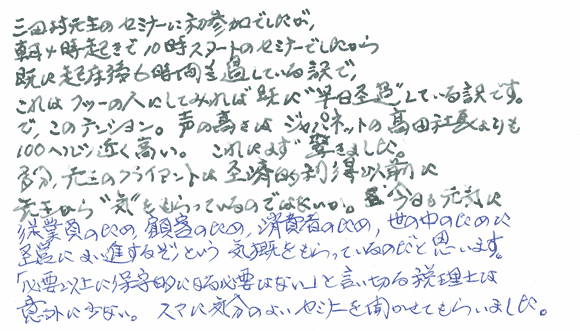 三田村先生のセミナーに初参加でしたが、
朝4時起きで10時スタートのセミナーでしたから
既に起床後6時間も過している訳で、
これはフツーの人にしてみれば既に"半日経過"している訳です。
で、このテンション。声の高さはジャパネットの高田社長よりも
100ヘルツ近く高い。これにまず驚きました。
多分、先生のクライアントは経済的利得以前に
先生から"気"をもらっているのではないか。"今日も元気に
従業員のため、顧客のため、消費者のため、世の中のために
経営にまい進するぞ"という気概をもらっているのだと思います。
「必要以上に保守的になる必要はない」と言い切る税理士は
意外に少ない。スマに気分のよいセミナーを聞かせてもらいました。